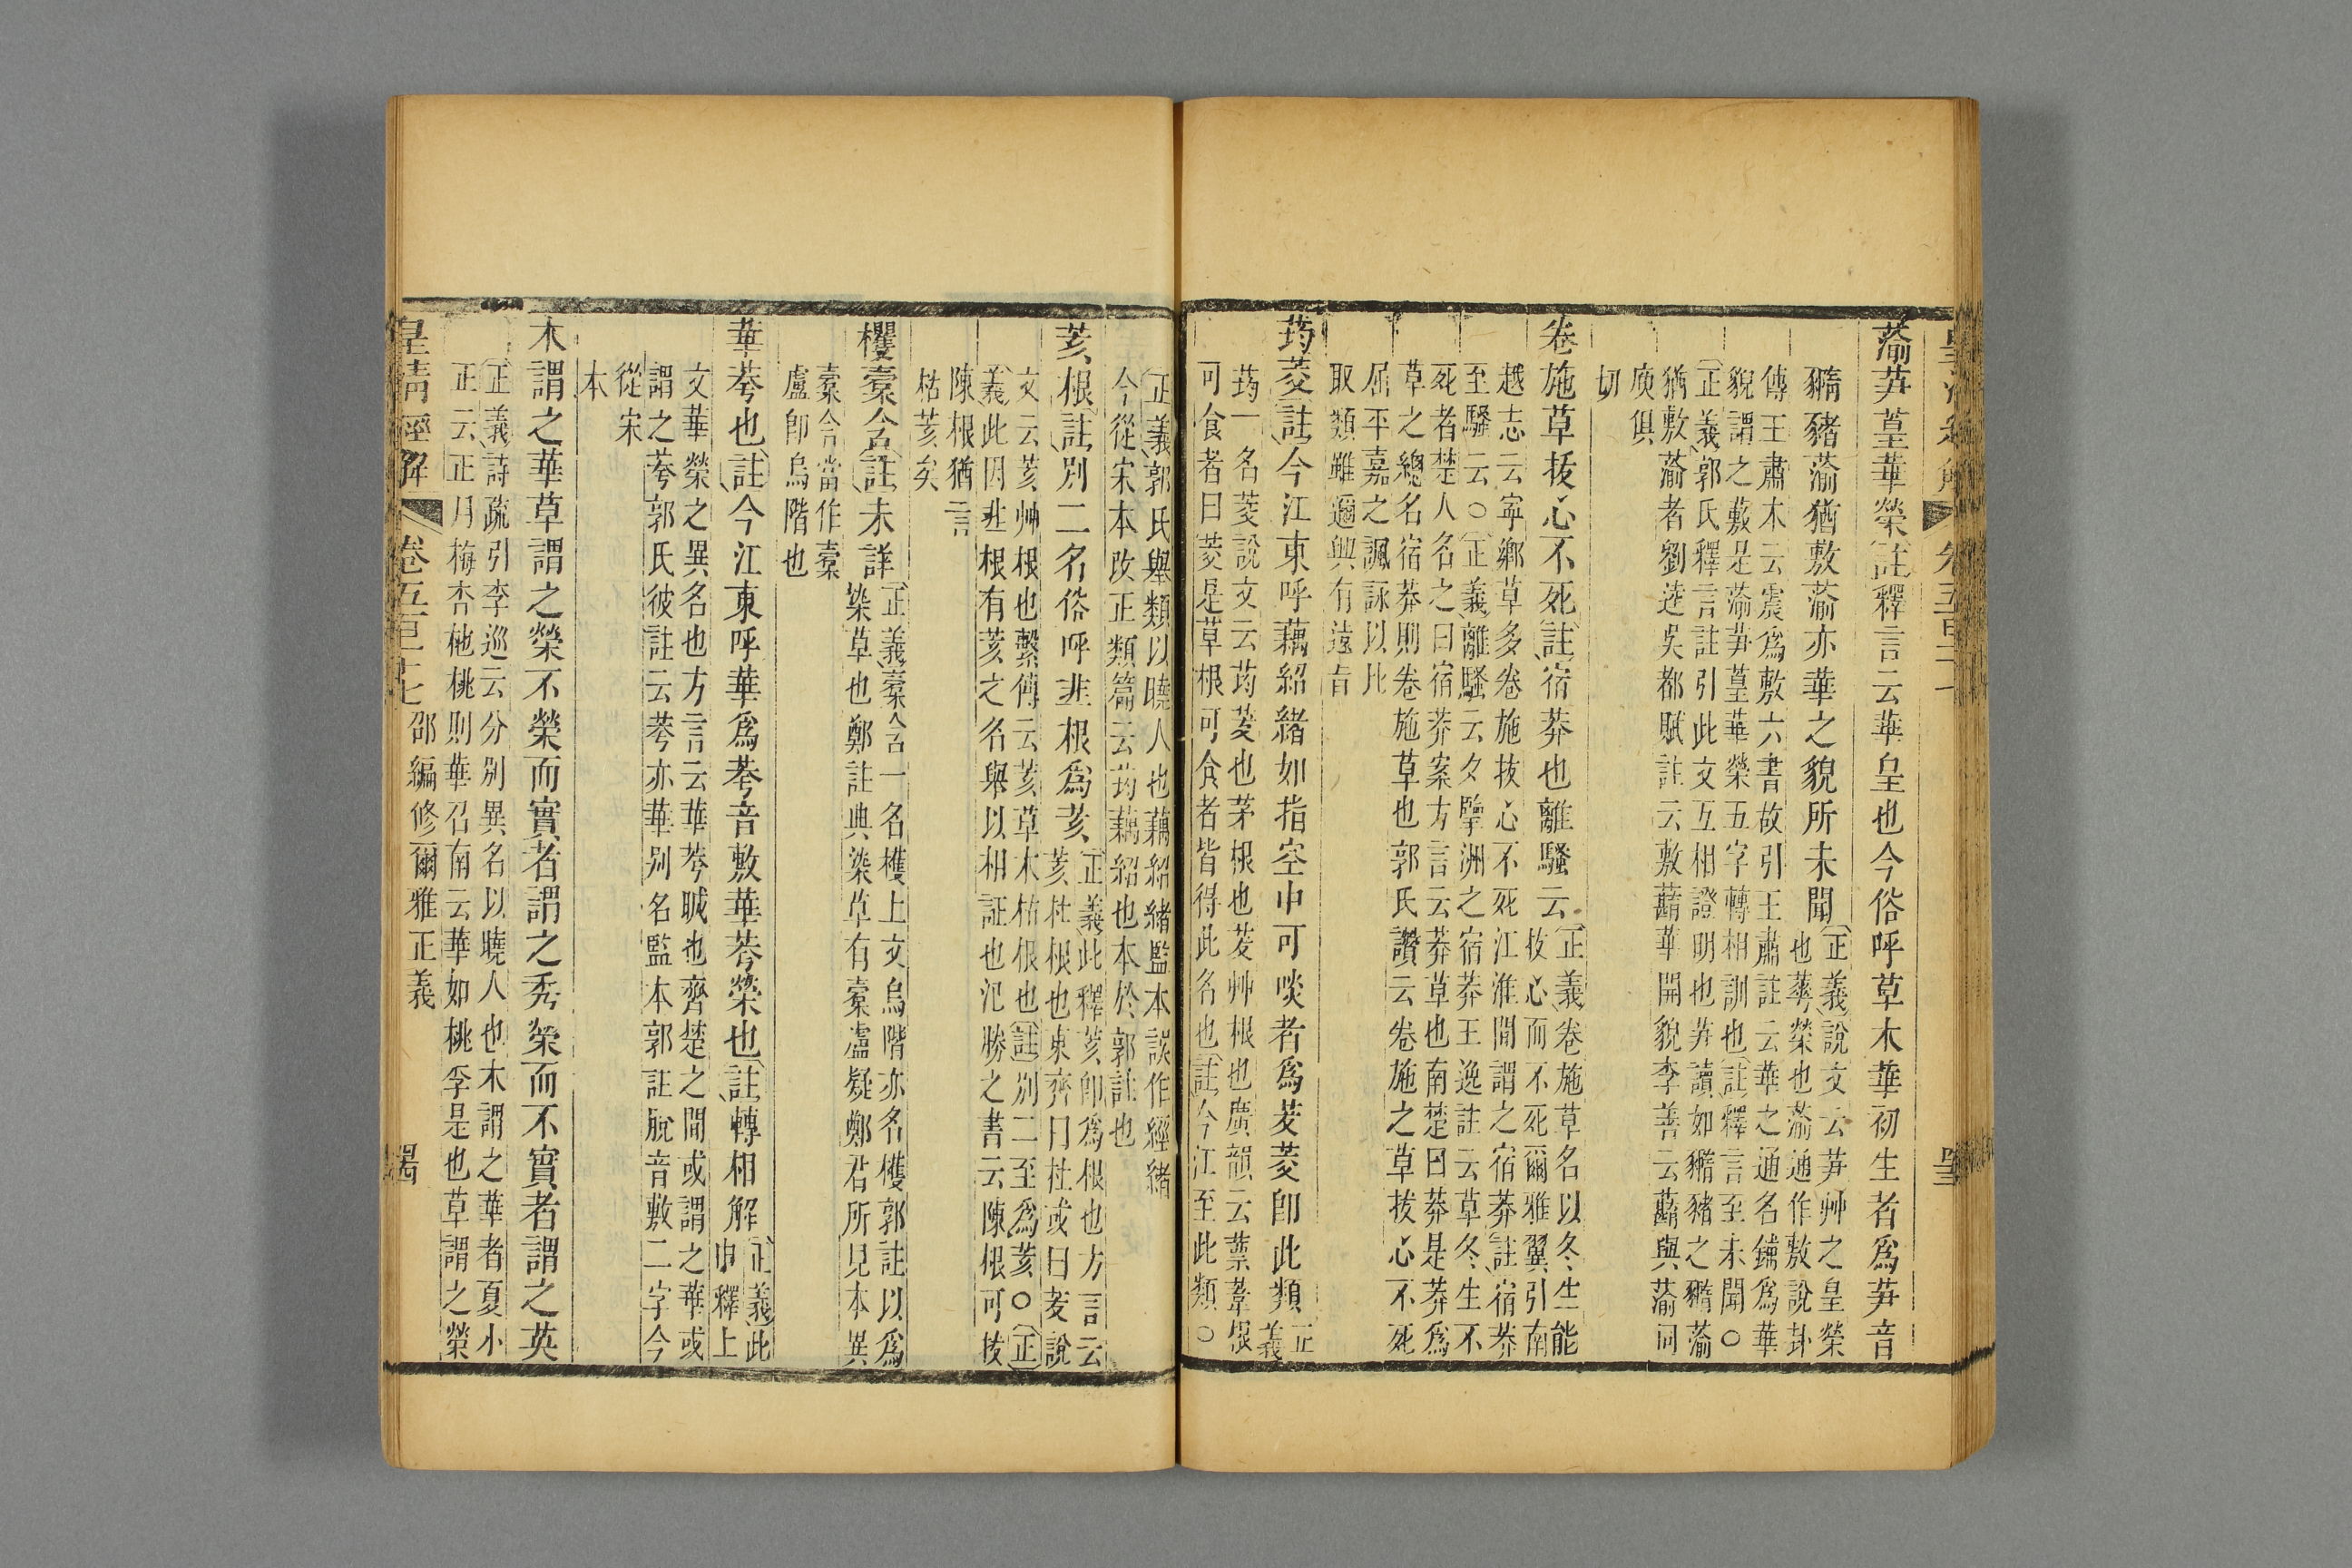 蕍芛葟華榮〔註〕釋言云華皇也今俗呼草木華初生者爲芛音
豨豬蕍猶敷蕍亦華之貌所未聞〔正義〕說文云芛艸之皇榮
也蕐榮也蕍通作敷說卦
傳王肅木云震爲敷六書故引王肅註云華之通名鋪爲華
貌謂之藪是蕍芛葟華榮五字轉相訓也〔註〕釋言至未聞○
〔正義〕郭氏釋言註引此文互相證明也芛讀如豨豬之豨蕍
猶敷蕍者劉逵吳都賦註云敷蘛華開貌李善云蘛與蕍同
庾俱
切
卷施草拔心不死〔註〕宿莽也離騷云〔正義〕卷施草名以冬生能
拔心而不死爾雅翼引南
越志云寧鄉草多卷施拔心不死江淮閒謂之宿莽〔註〕宿莽
至騷云○〔正義〕離騷云夕擥洲之宿莽王逸註云草冬生不
死者楚人名之曰宿莽案方言云莽草也南楚曰莽是莽爲
草之總名宿莽則卷施草也郭氏讚云卷施之草拔心不死
屈平嘉之諷詠以比
取類雖邇興有遠旨
荺茭〔註〕今江東呼藕紹緒如指空中可啖者爲茭茭卽此類〔正
義〕
荺一名茭說文云荺茇也茅根也茇艸根也廣韻云葉葦根
可食者曰茭是草根可食者皆得此名也〔註〕今江至此類○
〔正義〕郭氏舉類以曉人也藕紹緒監本誤作經緒
今從宋本改正類篇云荺藕紹也本於郭註也
荄根〔註〕別二名俗呼韭根爲荄〔正義〕此釋荄卽爲根也方言云
荄杜根也東齊曰杜或曰茇說
文云荄艸根也繫傳云荄草木枯根也〔註〕別二至爲荄○〔正
義〕此因韭根有荄之名舉以相証也氾勝之書云陳根可拔
陳根猶言
枯荄矣
欔橐含〔註〕未詳〔正義〕橐含一名欔上文烏階亦名欔郭註以爲
染草也鄭註典染草有橐盧疑鄭君所見本異
橐含當作橐
盧卽烏階也
華荂也〔註〕今江東呼華爲荂音敷華荂榮也〔註〕轉相解〔正義〕此
申釋上
文華榮之異名也方言云華荂晠也齊楚之閒或謂之華或
謂之荂郭氏彼註云荂亦華別名監本郭註脫音敷二字今
從宋
本
木謂之華草謂之榮不榮而實者謂之秀榮而不實者謂之英
〔正義〕詩疏引李巡云分別異名以曉人也木謂之華者夏小
正云正月梅杏杝桃則華召南云華如桃李是也草謂之榮
皇淸經解 卷五百十七 邵編修爾雅正義